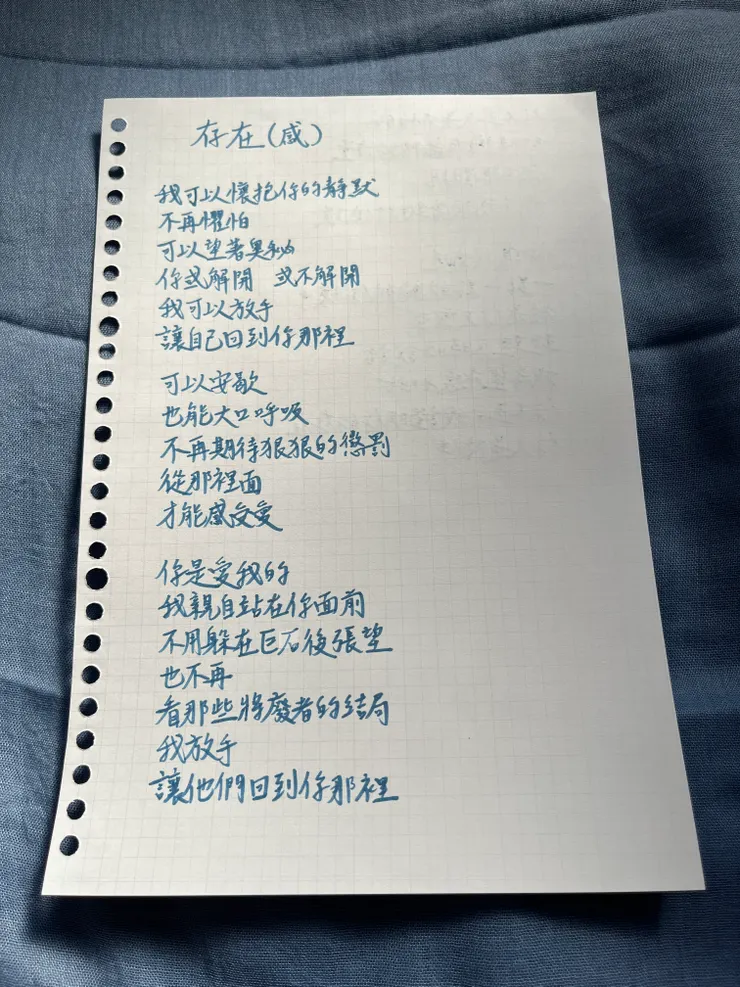 存在(感)
我可以懷抱你的靜默
不再懼怕
可以望著奧秘
你或解開 或不解開
我可以放手
讓自己回到你那裡
可以安歇
也能大口呼吸
不再期待狠狠的懲罰
從那裡面
才能感受愛
你是愛我的
我親自站在你面前
不用躲在巨石後張望
也不再
看那些將廢者的結局
我放手
讓他們回到你那裡